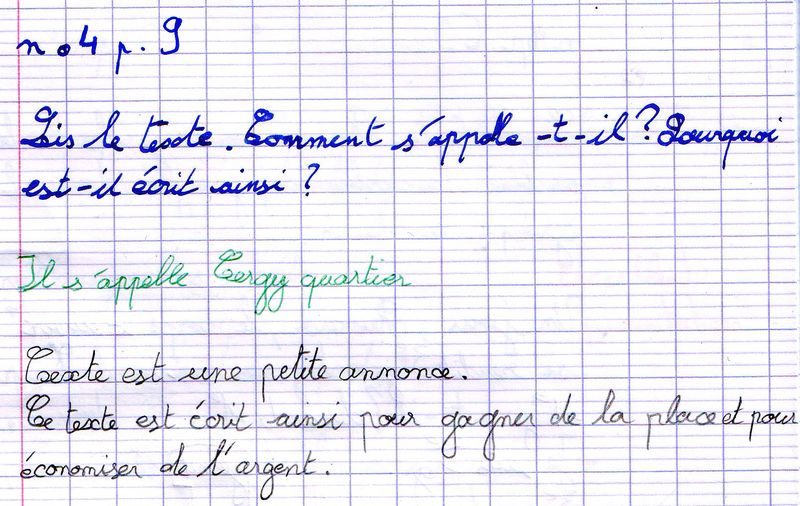 n°4 p. 9
Lis le texte. Comment s'appelle-t-il? Pourquoi
est-il écrit ainsi?
Il s'appelle Cergy quartier
Cexte est une petite annonce.
Ce texte est écrit ainsi pour gagner de la place et pour
économiser de l'argent.